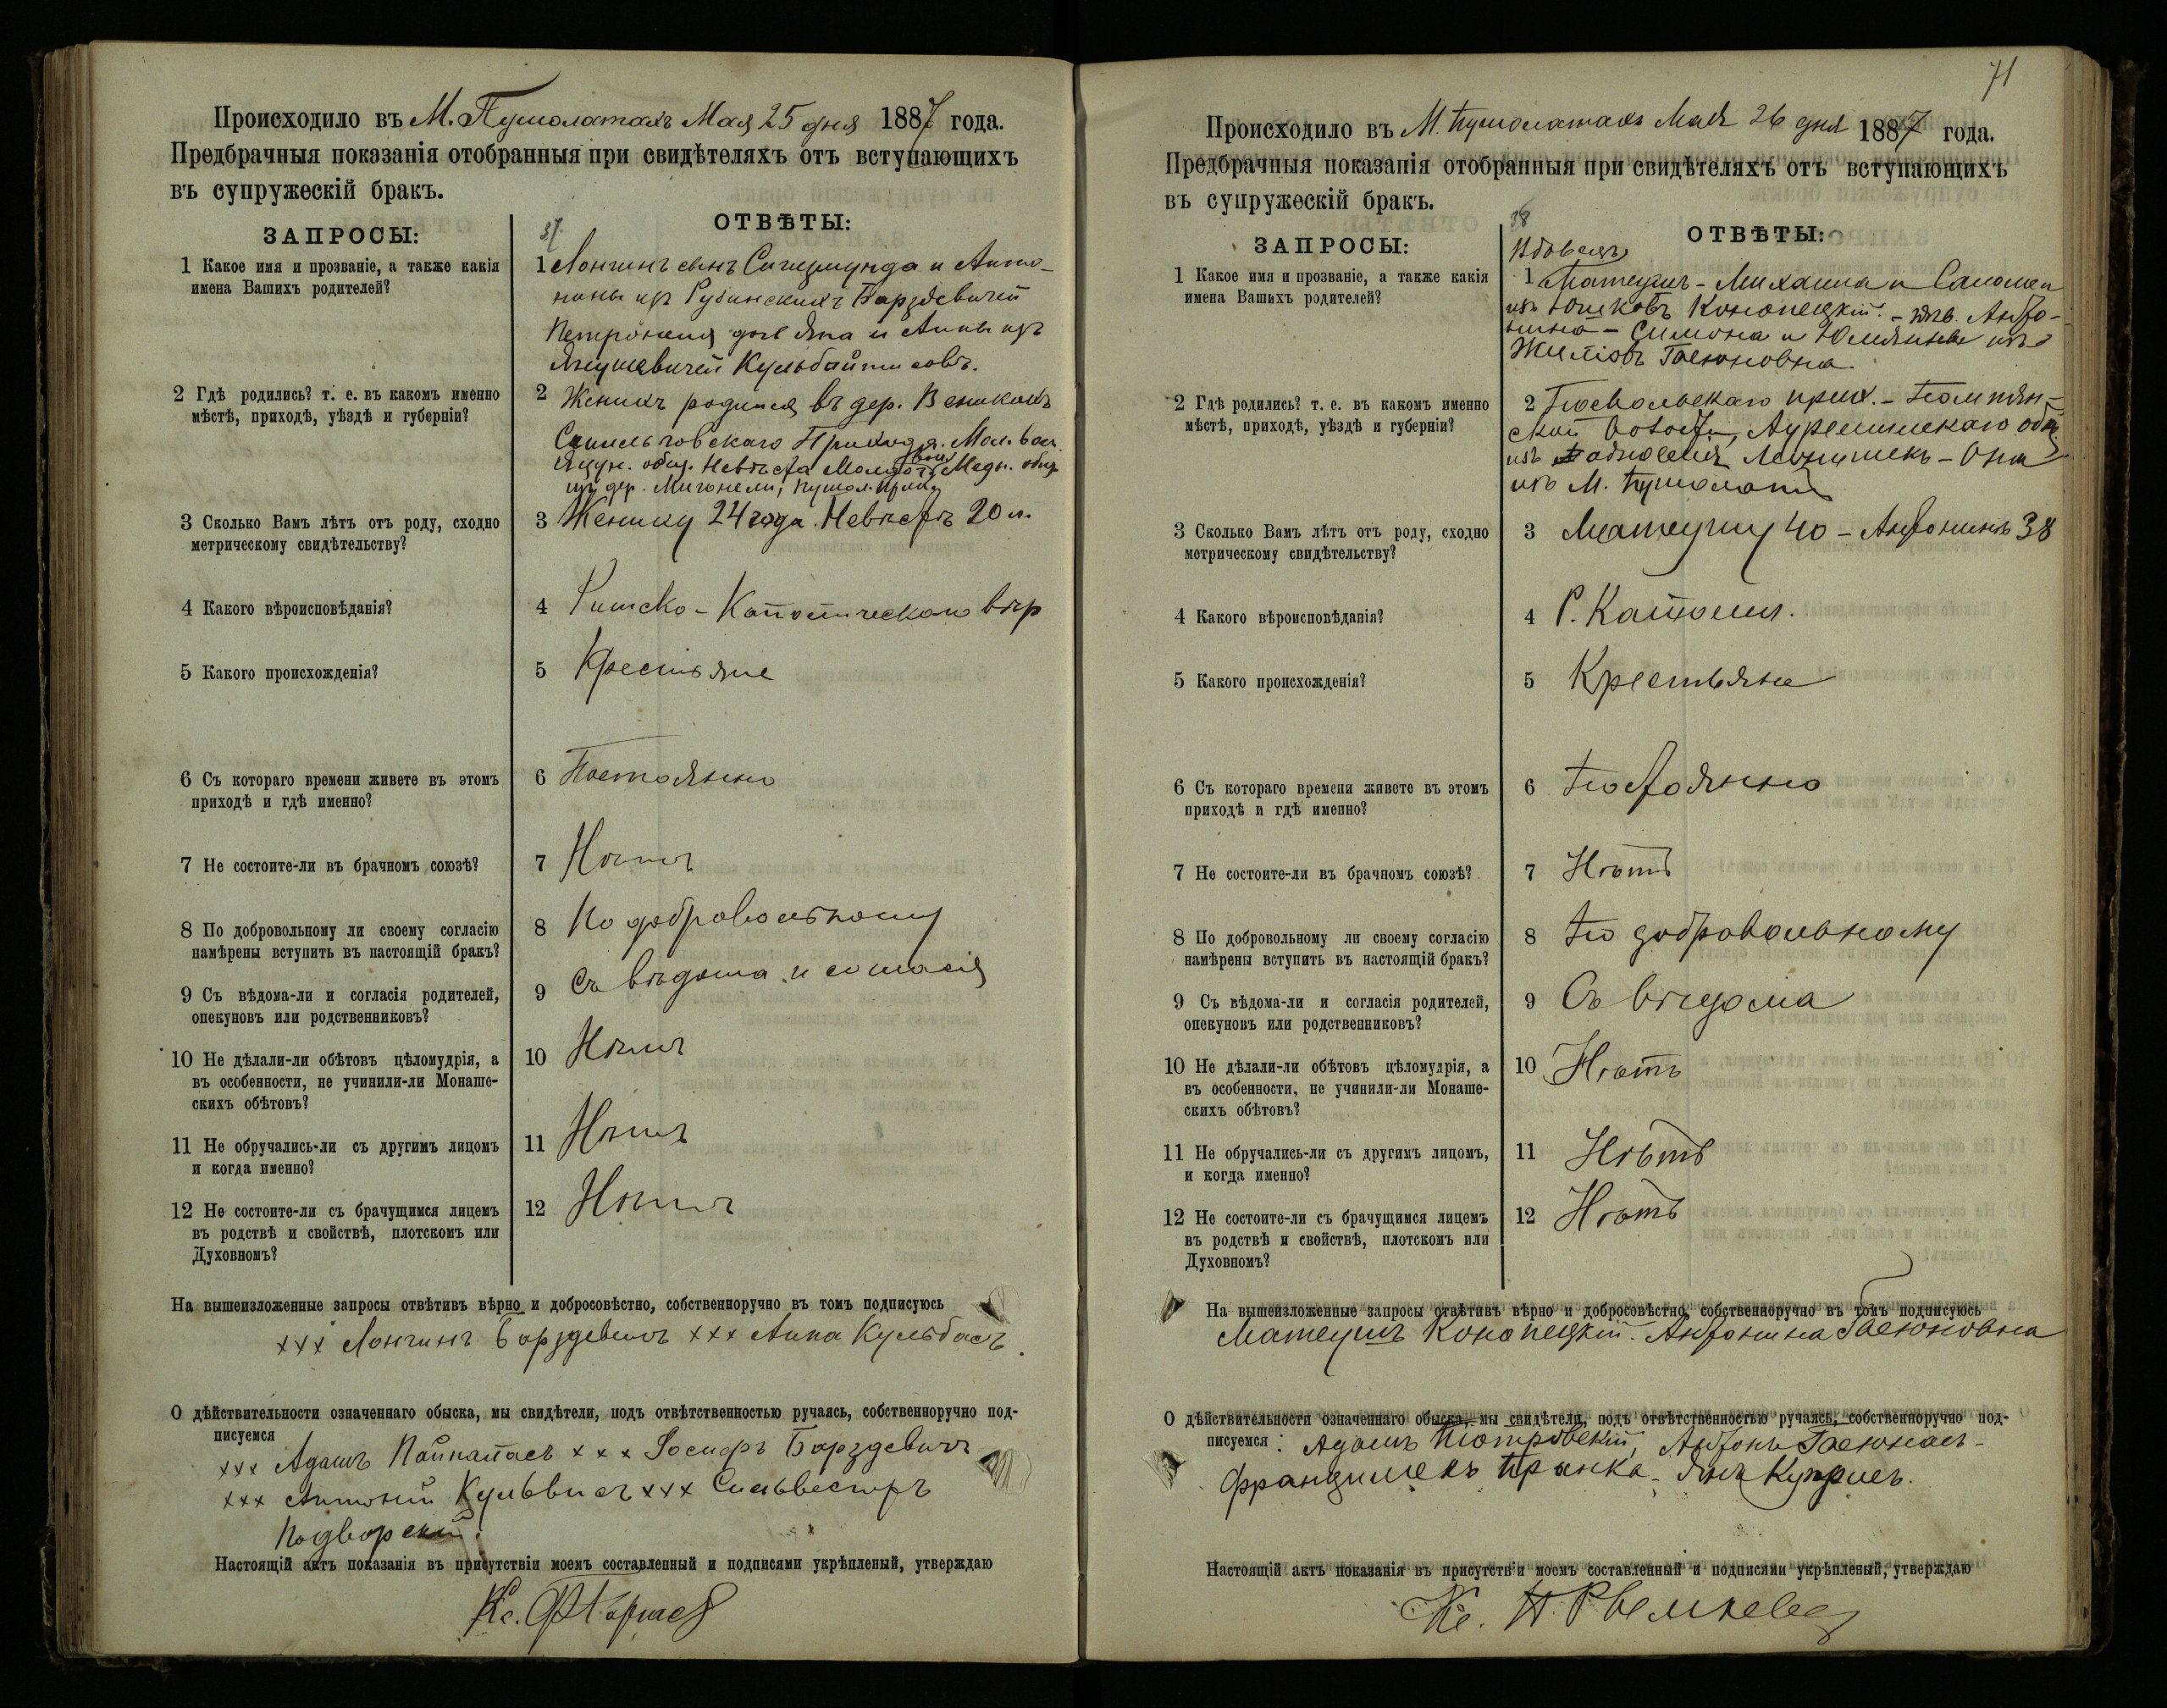 Происходило въ М. Пумолатахъ Мая 25 дня 1887 года.
Предбрачныя показанія отобранныя при свидѣтеляхъ отъ вступающихъ
въ супружескій бракъ.
ЗАПРОСЫ:
37.
ОТВѢТЫ:
1 Какое имя и прозваніе, а также какія
имена Вашихъ родителей?
1 Лонгинъ сынъ Сигизмунда и Анто-
нины изъ Рубинскихъ Барздевичей
Петронеля дочь Яна и Анны изъ
Янушевичей Кульбайтисовъ.
2 Гдѣ родились? т. е. въ какомъ именно
мѣстѣ, приходѣ, уѣздѣ и губерніи?
2 Женихъ родился въ дер.
Прихода. Мол. вол.
общ. Невѣста общ.
изъ дер.
3 Сколько Вамъ лѣтъ отъ роду, сходно
метрическому свидѣтельству?
3 Жениху 24 года. Невѣстѣ 20 л.
4 Какого вѣроисповѣданія?
4 Римско-Католическаго вѣр
5 Какого происхожденія?
5 Крестьяне
6 Съ котораго времени живете въ этомъ
приходѣ и гдѣ именно?
6 Постоянно
7 Не состоите-ли въ брачномъ союзѣ?
7 Нѣтъ
8 По добровольному ли своему согласію
намѣрены вступить въ настоящій бракъ?
8 По добровольному
9 Съ вѣдома-ли и согласія родителей,
опекуновъ или родственниковъ?
9 Съ вѣдома и согласія
10 Не дѣлали-ли обѣтовъ цѣломудрія, а
въ особенности, не учинили-ли Монаше-
скихъ обѣтовъ?
10 Нѣтъ
11 Не обручались-ли съ другимъ лицомъ
и когда именно?
11 Нѣтъ
12 Не состоите-ли съ брачущимся лицемъ
въ родствѣ и свойствѣ, плотскомъ или
Духовномъ?
12 Нѣтъ
На вышеизложенные запросы отвѣтивъ вѣрно и добросовѣстно, собственноручно въ томъ подписуюсь
xxx Лонгинъ Барздевичъ xxx Анна Кульбасъ.
О дѣйствительности означеннаго обыска, мы свидѣтели, подъ отвѣтственностью ручаясь, собственноручно под-
писуемся
xxx Адамъ xxx Іосифъ Барздевичъ
xxx Антоній xxx Сильвестръ
Подворскій.
Настоящій актъ показанія въ присутствіи моемъ составленный и подписями укрѣпленый, утверждаю
Кс.
71
Происходило въ М. Пумолатахъ Мая 26 дня 1887 года.
Предбрачныя показанія отобранныя при свидѣтеляхъ отъ вступающихъ
въ супружескій бракъ.
ЗАПРОСЫ:
38
ОТВѢТЫ:
Вдовецъ
1 Какое имя и прозваніе, а также какія
имена Вашихъ родителей?
1 Матеушъ - Михаила и Саломеи
изъ Юшковъ Конопецкій. - Анто-
нина - Симона и Юліанны изъ
Гаеюновна.
2 Гдѣ родились? т. е. въ какомъ именно
мѣстѣ, приходѣ, уѣздѣ и губерніи?
2 Посвольскаго прих. - Помпян-
ской Волости, общ.
изъ - Она
изъ М. Пумолатъ
3 Сколько Вамъ лѣтъ отъ роду, сходно
метрическому свидѣтельству?
3 Матеушу 40 - Антонинѣ 38
4 Какого вѣроисповѣданія?
4 Р. Католич.
5 Какого происхожденія?
5 Крестьяне
6 Съ котораго времени живете въ этомъ
приходѣ и гдѣ именно?
6 Постоянно
7 Не состоите-ли въ брачномъ союзѣ?
7 Нѣтъ
8 По добровольному ли своему согласію
намѣрены вступить въ настоящій бракъ?
8 По добровольному
9 Съ вѣдома-ли и согласія родителей,
опекуновъ или родственниковъ?
9 Съ вѣдома
10 Не дѣлали-ли обѣтовъ цѣломудрія, а
въ особенности, не учинили-ли Монаше-
скихъ обѣтовъ?
10 Нѣтъ
11 Не обручались-ли съ другимъ лицомъ,
и когда именно?
11 Нѣтъ
12 Не состоите-ли съ брачущимся лицемъ
въ родствѣ и свойствѣ, плотскомъ или
Духовномъ?
12 Нѣтъ
На вышеизложенные запросы отвѣтивъ вѣрно и добросовѣстно, собственноручно въ томъ подписуюсь
Матеушъ Конопецкій. Антонина Гаеюновна
О дѣйствительности означеннаго обыска, мы свидѣтели, подъ отвѣтственностью ручаясь, собственноручно под-
писуемся: Адамъ Піотровскій, Антонъ Гаеюнасъ -
Францишекъ Пранка - Янъ Куприсъ.
Настоящій актъ показанія въ присутствіи моемъ составленный и подписями укрѣпленый, утверждаю
Кс. П.